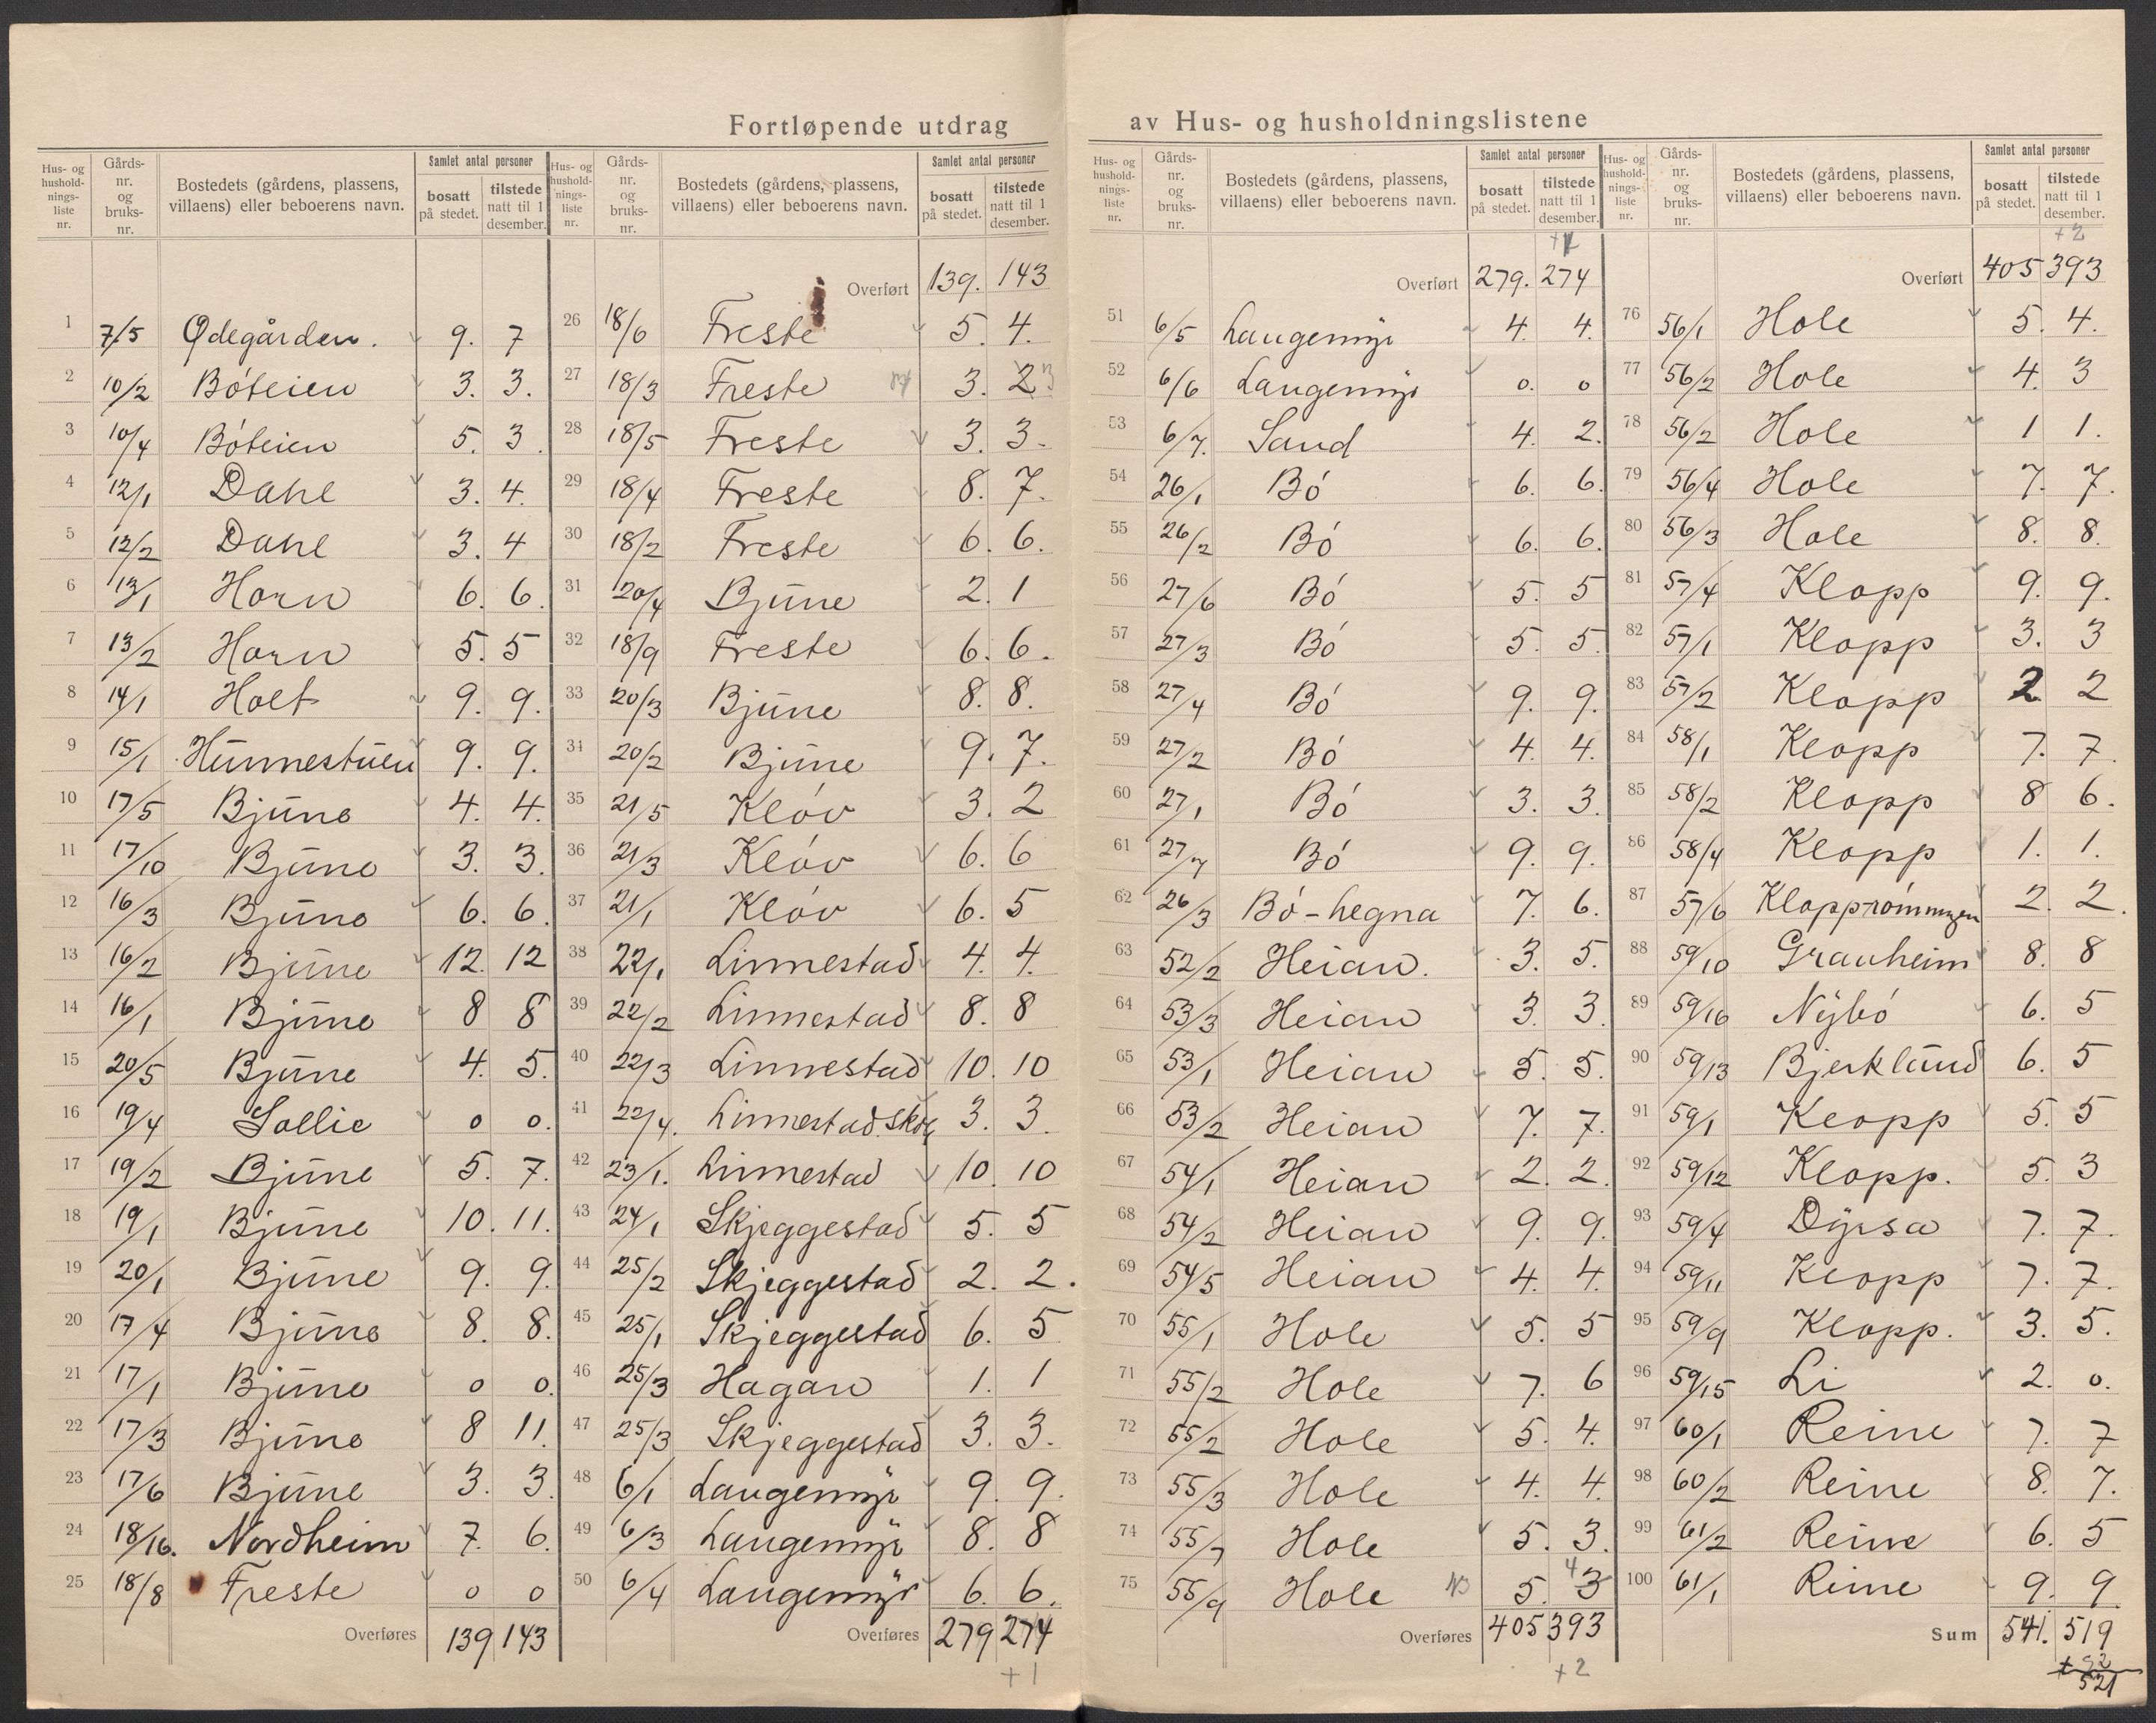 Fortløpende utdrag av Hus- og husholdningslistene
Hus- og hushold- nings- liste nr. | Gårds- nr. og bruks- nr. | Bostedets (gårdens, plassens, villaens) eller beboerens navn. | Samlet antal personer bosatt på stedet. | tilstede natt til 1 desember.
1 7/5 Ødegården. 9. 7
2 10/2 Bóteien 3. 3.
3 10/4 Bóteien 5. 3.
4 12/1 Dahl 3. 4.
5 12/2 Dahl 3. 4
6 13/1 Horn 6. 6.
7 13/2 Horn 5. 5
8 14/1 Holt 9. 9.
9 15/1 Hunnestuen 9. 9.
10 17/5 Bjune 4. 4.
11 17/10 Bjune 3. 3.
12 16/3 Bjune 6. 6.
13 16/2 Bjune 12. 12
14 16/1 Bjune 8 8
15 20/5 Bjune 4. 5.
16 19/4 Sollie 0 0.
17 19/2 Bjune 5. 7.
18 19/1 Bjune 10. 11.
19 20/1 Bjune 9. 9.
20 17/4 Bjune 8. 8.
21 17/1 Bjune 0 0.
22 17/3 Bjune 8 11.
23 17/6 Bjune 3. 3.
24 18/16. Nordheim 7. 6.
25 18/8 Freste 0 0
Overføres 139 143
Hus- og hushold- nings- liste nr. | Gårds- nr. og bruks- nr. | Bostedets (gårdens, plassens, villaens) eller beboerens navn. | Samlet antal personer bosatt på stedet. | tilstede natt til 1 desember.
Overført 139. 143
26 18/6 Freste 5. 4.
27 18/3 Freste 3. 2 3
28 18/5 Freste 3. 3.
29 18/4 Freste 8. 7.
30 18/2 Freste 6. 6.
31 20/4 Bjune 2. 1
32 18/9 Freste 6. 6.
33 20/3 Bjune 8. 8.
34 20/2 Bjune 9. 7.
35 21/5 Klóv 3. 2
36 21/3 Klóv 6. 6
37 21/1 Klóv 6. 5
38 22/1 Linnestad 4. 4.
39 22/2 Linnestad 8. 8
40 22/3 Linnestad 10. 10
41 22/4. Linnestad.skog 3. 3.
42 23/1. Linnestad 10. 10
43 24/1 Skjeggestad 5. 5
44 25/2 Skjeggestad 2. 2.
45 25/1 Skjeggestad 6. 5
46 25/3 Hagan 1. 1
47 25/3 Skjeggestad 3. 3.
48 6/1 Laugemyr 9. 9.
49 6/3 Laugemyr 8. 8
50 6/4 Laugemyr 6. 6.
Overføres 279 274
+1
Hus- og hushold- nings- liste nr. | Gårds- nr. og bruks- nr. | Bostedets (gårdens, plassens, villaens) eller beboerens navn. | Samlet antal personer bosatt på stedet. | tilstede natt til 1 desember.
Overført 279. 274
51 6/5 Laugemyr 4. 4.
52 6/6 Laugemyr 0. 0
53 6/7. Sand 4. 2.
54 26/1 Bó 6. 6.
55 26/2 Bó 6. 6.
56 27/6 Bó 5. 5
57 27/3 Bó 5. 5.
58 27/4 Bó 9. 9.
59 27/2 Bó 4. 4.
60 27/1 Bó 3. 3.
61 27/7 Bó 9. 9.
62 26/3 Bó-hegna 7. 6.
63 52/2 Heian. 3. 5.
64 53/3 Heian 3. 3.
65 53/1 Heian 5. 5.
66 53/2 Heian 7. 7.
67 54/1 Heian 2. 2.
68 54/2 Heian 9. 9.
69 54/5 Heian 4. 4.
70 55/1 Hole 5. 5
71 55/2 Hole 7. 6
72 55/2 Hole 5. 4.
73 55/3 Hole 4. 4.
74 55/7 Hole 5. 3.
75 55/9 Hole NB 5. 4 3
Overføres 405 393
+2
Hus- og hushold- nings- liste nr. | Gårds- nr. og bruks- nr. | Bostedets (gårdens, plassens, villaens) eller beboerens navn. | Samlet antal personer bosatt på stedet. | tilstede natt til 1 desember.
+2
Overført 405 393
76 56/1 Hole 5. 4.
77 56/2 Hole 4. 3
78 56/2 Hole 1 1.
79 56/4 Hole 7. 7.
80 56/3 Hole 8. 8.
81 57/4 Klopp 9. 9.
82 57/1 Klopp 3. 3
83 57/2 Klopp 2 2
84 58/1 Klopp 7. 7.
85 58/2 Klopp 8 6.
86 58/4 Klopp 1. 1.
87 57/6 Klopprómningen 2. 2.
88 59/10 Granheim 8. 8
89 59/16 Nybó 6. 5
90 59/13 Bjerklund 6. 5
91 59/1 Klopp 5. 5
92 59/12 Klopp. 5. 3
93 59/4 Dyrsa 7. 7.
94 59/11 Klopp 7. 7.
95 59/9 Klopp. 3. 5.
96 59/15 Li 2. 0.
97 60/1 Reine 7. 7
98 60/2 Reine 8. 7.
99 61/2 Reine 6. 5
100 61/1 Reine 9. 9.
Sum 541. 519
521